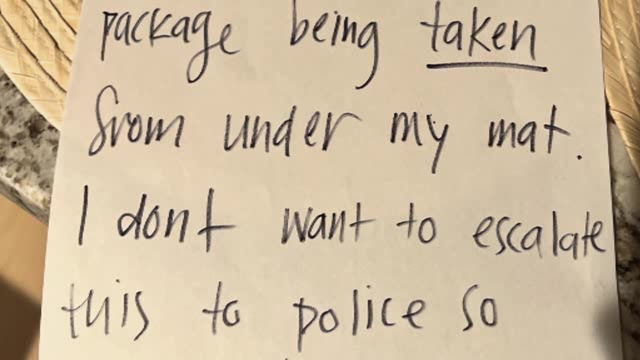 package being taken
from under my mat.
I dont want to escalate
this to police so